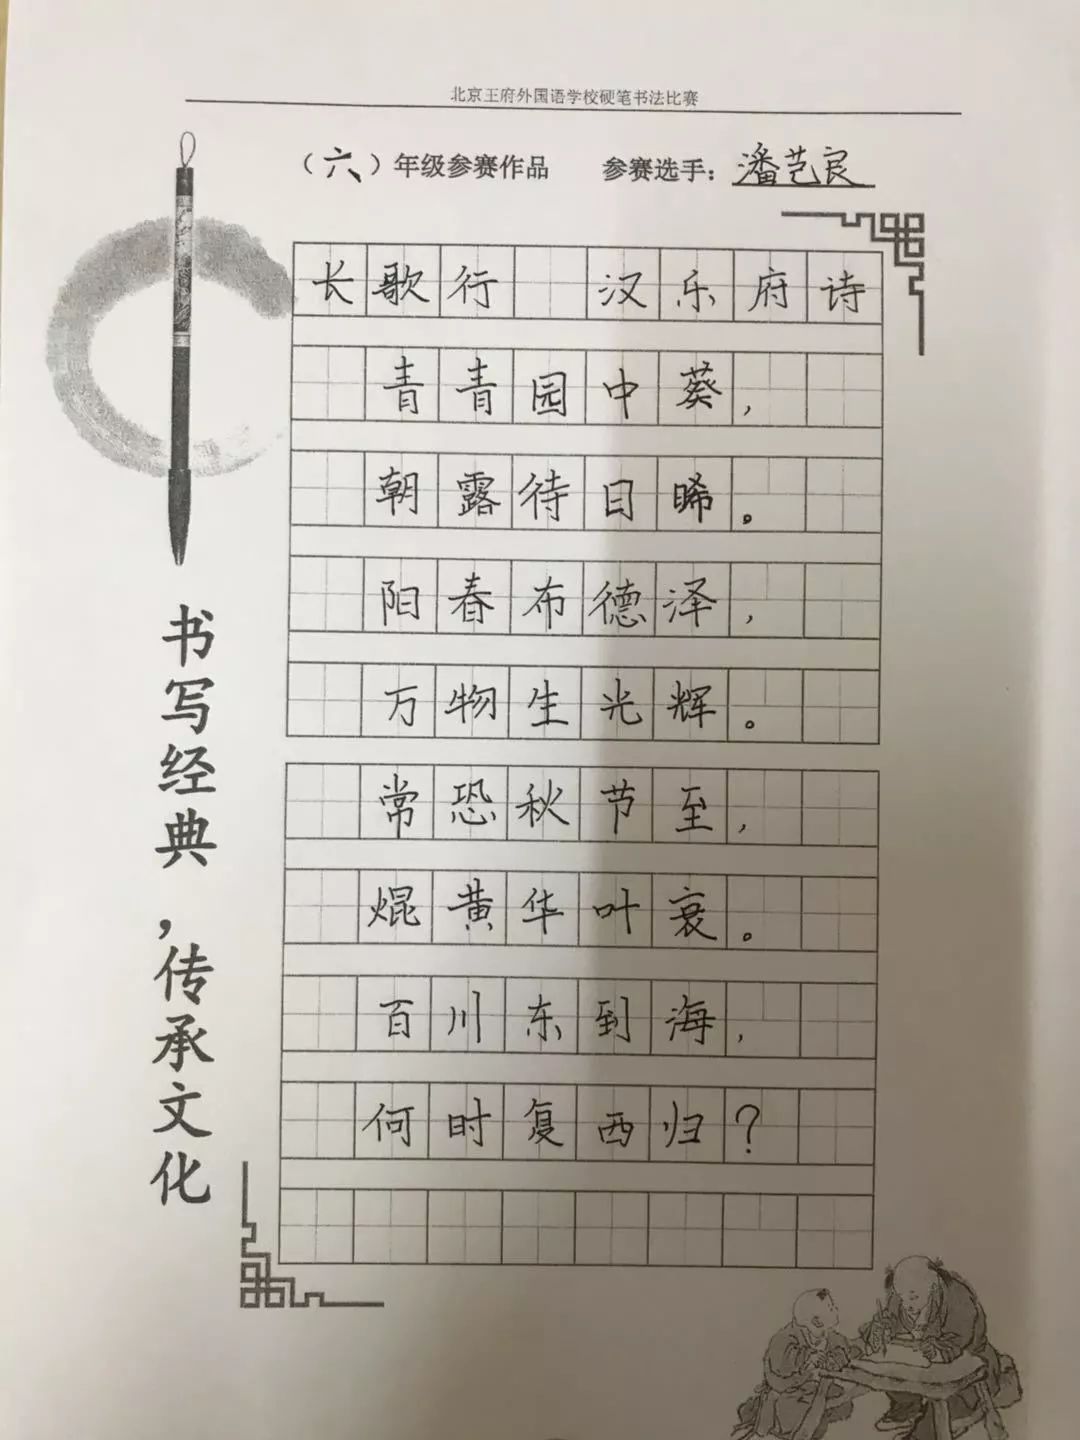 北京王府外国语学校硬笔书法比赛
（六、）年级参赛作品 参赛选手：潘艺良
长歌行 汉乐府诗
青青园中葵，
朝露待日晞。
阳春布德泽，
万物生光辉。
常恐秋节至，
焜黄华叶衰。
百川东到海，
何时复西归？
书写经典，传承文化